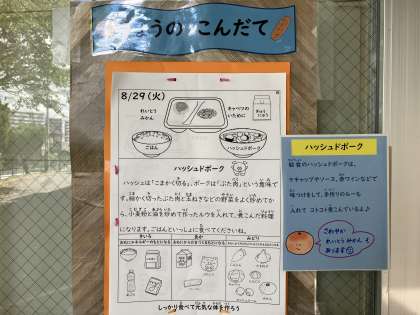 きょうの こんだて
8/29(火)
れいとう
みかん
キャベツの
いために
ぎゅうにゅう
ごはん
ハッシュドポーク
ハッシュドポーク
ハッシュは「こまかく切る」、ポークは「ぶた肉」という意味で
す。細かく切ったぶた肉と玉ねぎなどの野菜をよく炒めてか
ら、小麦粉と油を炒めて作ったルウを入れて、煮こんだ料理
になります。ごはんといっしょに食べてくださいね。
きいろ
あか
みどり
しっかり食べて元気な体を作ろう
ハッシュドポーク
給食のハッシュドポークは、
ケチャップやソース、赤ワインなどで
味つけをして、手作りのルーも
入れて コトコト煮こんでいるよ♪
さわやか
れいとうみかん も
あります